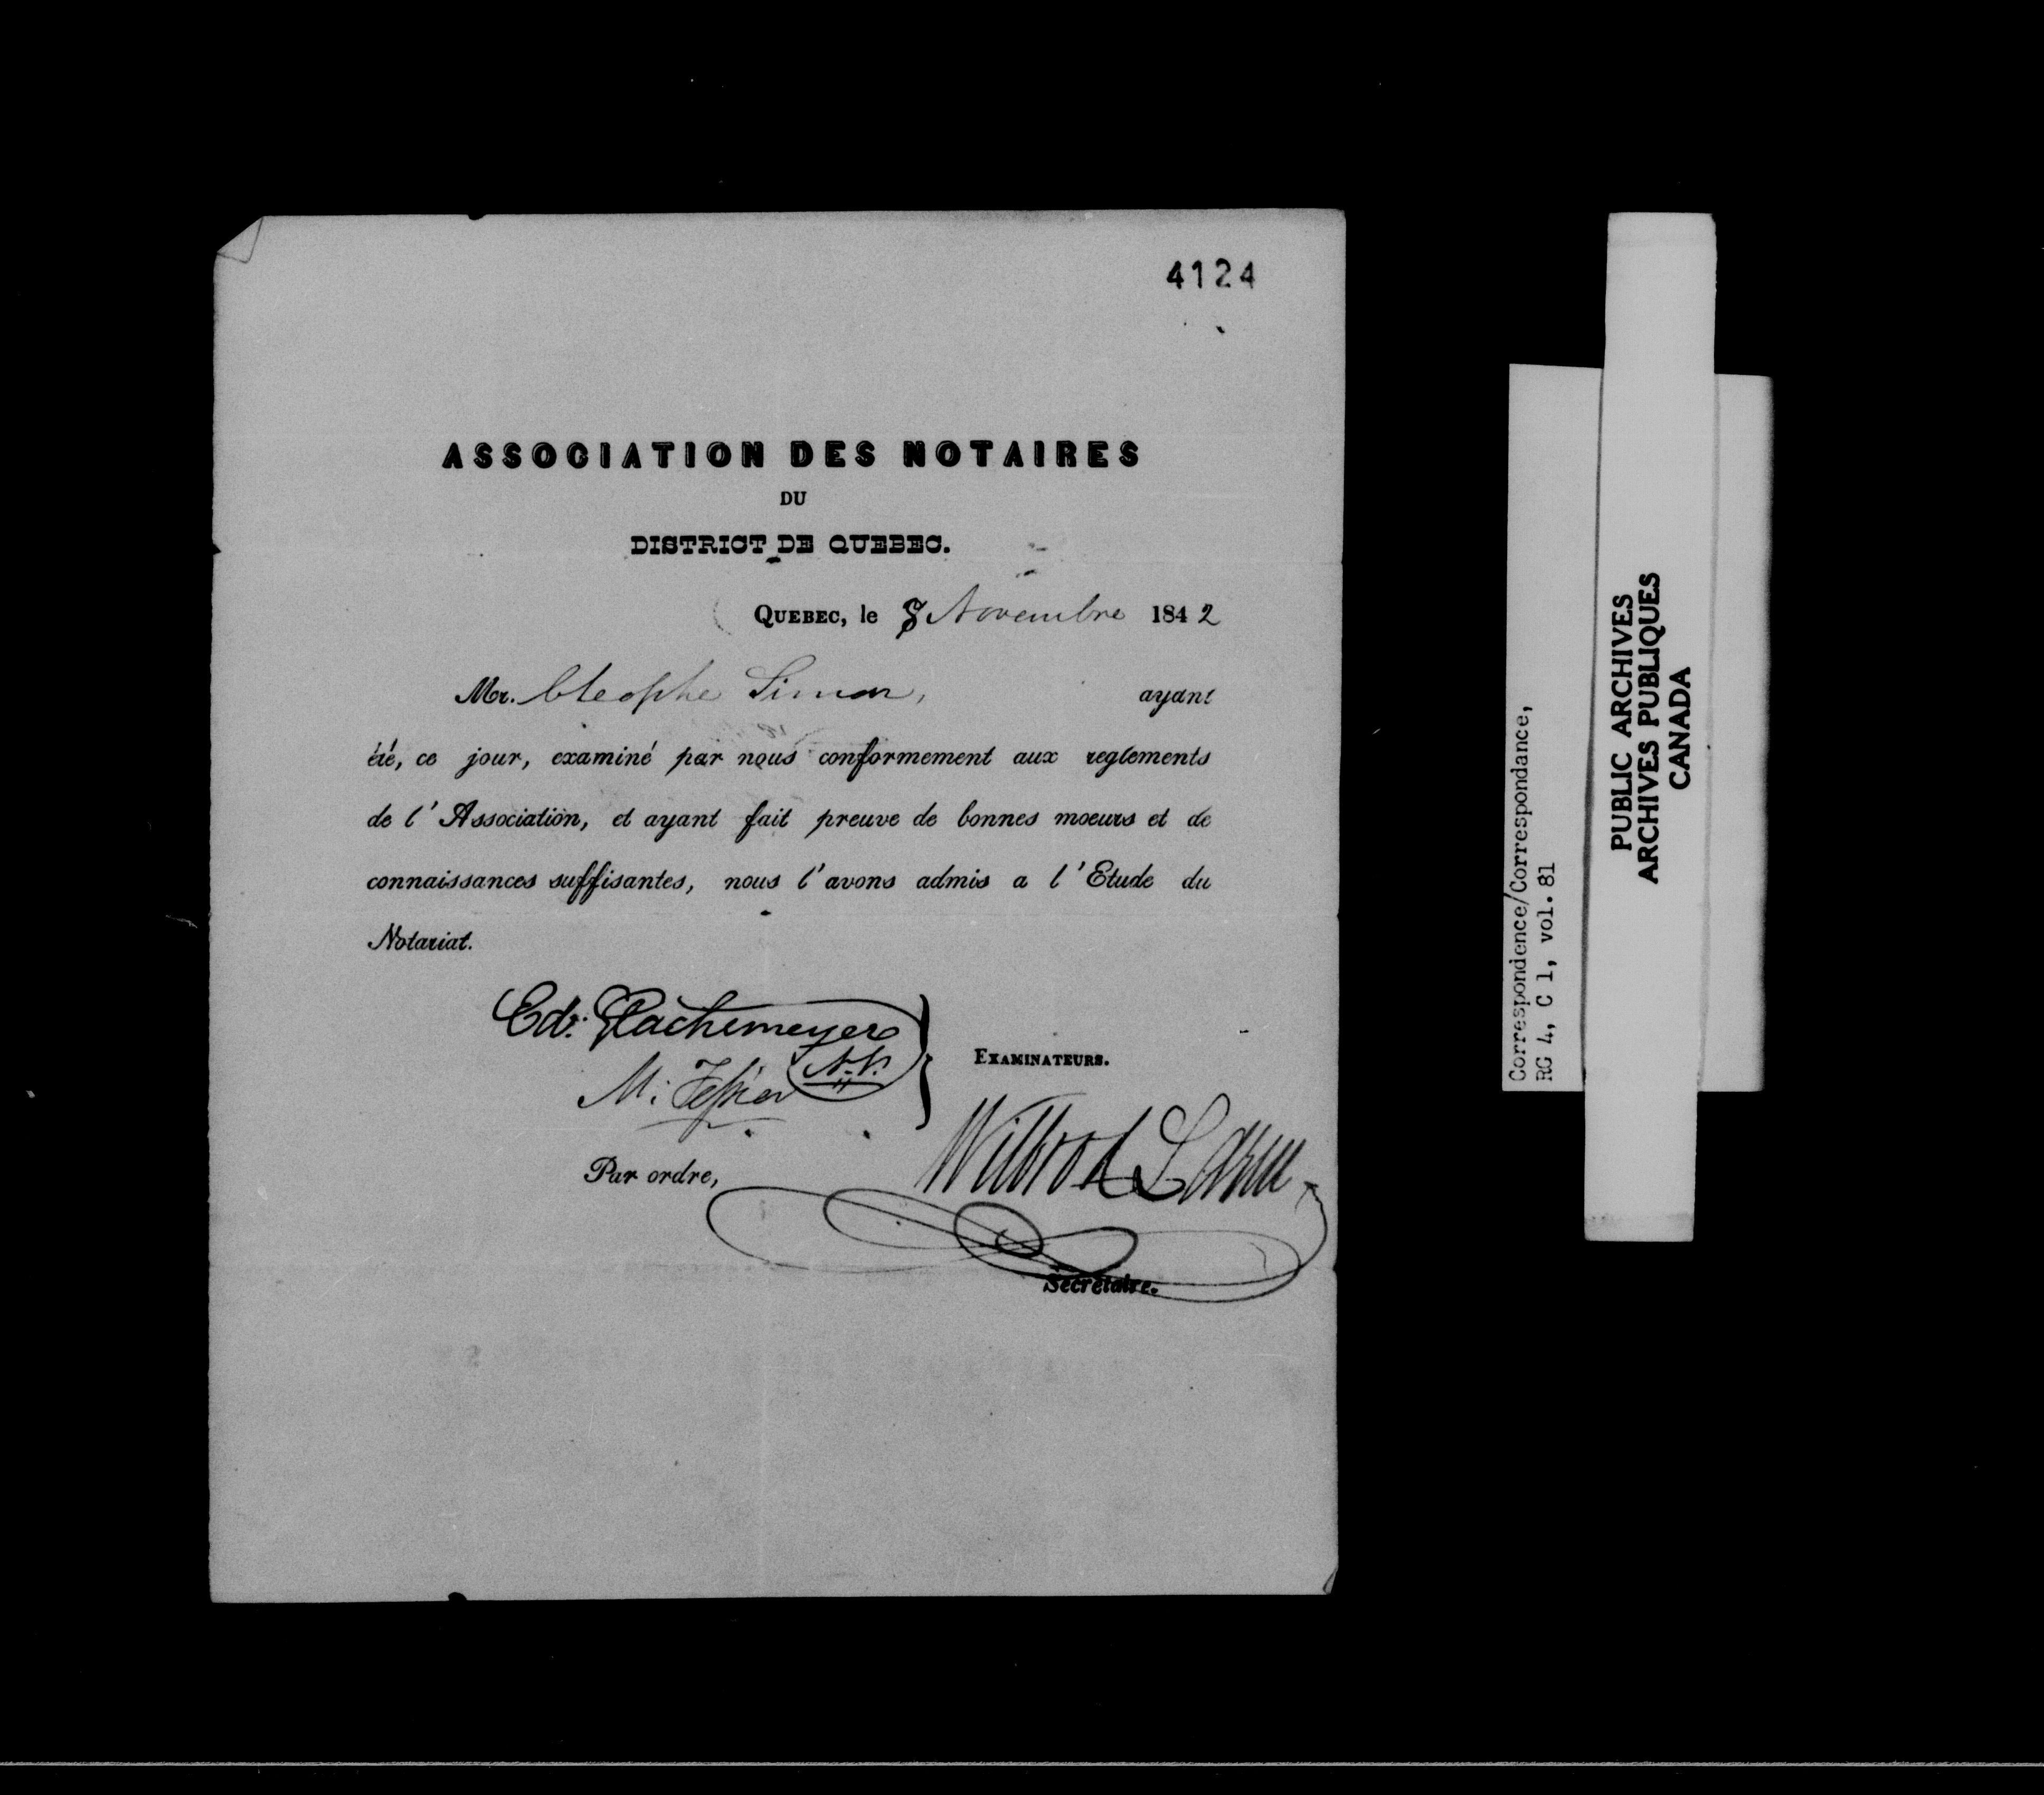 4124
ASSOCIATION DES NOTAIRES
DU
DISTRICT DE QUEBEC.
QUEBEC, le 8 Novembre 1842
Mr. Cleophe Simon, ayant
été, ce jour, examiné par nous conformement aux reglements
de l'Association, et ayant fait preuve de bonnes moeurs et de
connaissances suffisantes, nous l'avons admis a l'Etude du
Notariat.
Ed. Glackemeyer
N.P.
M. Tessier
EXAMINATEURS.
Par ordre,
Wilbrod Larue
Secrétaire.
Correspondence/Correspondance,
RG 4, C 1, vol. 81
PUBLIC ARCHIVES
ARCHIVES PUBLIQUES
CANADA